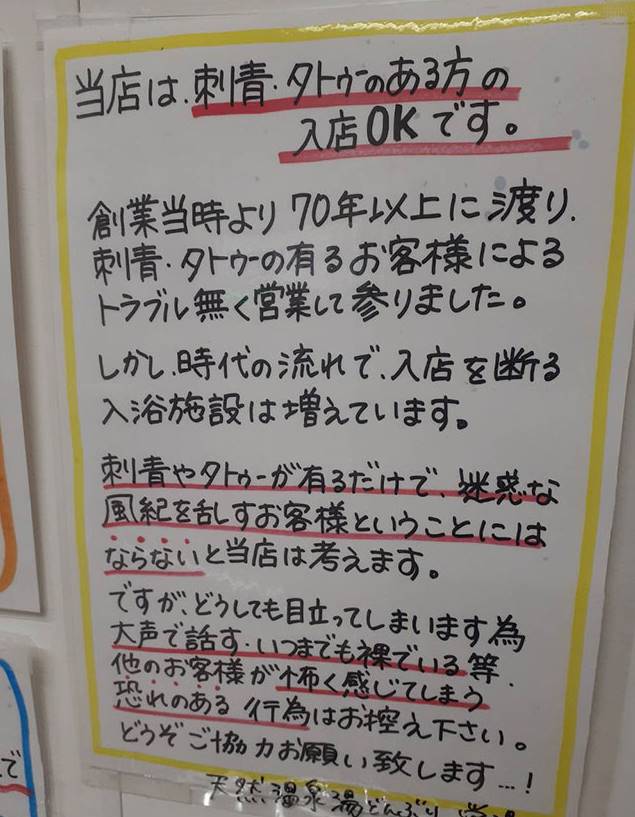 当店は、刺青・タトゥーのある方の
入店OKです。
創業当時より70年以上に渡り、
刺青・タトゥーの有るお客様による
トラブル無く営業して参りました。
しかし、時代の流れで、入店を断る
入浴施設は増えています。
刺青やタトゥーが有るだけで、迷惑な
風紀を乱すお客様ということには
ならないと当店は考えます。
ですが、どうしても目立ってしまいます為
大声で話す・いつまでも裸でいる等、
他のお客様が怖く感じてしまう
恐れのある行為はお控え下さい。
どうぞご協力お願い致します…!
天然温泉湯どんぶり
で